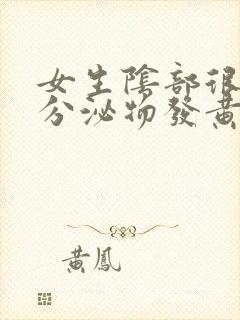 女生陰部很
分泌物發黃
黃鳳